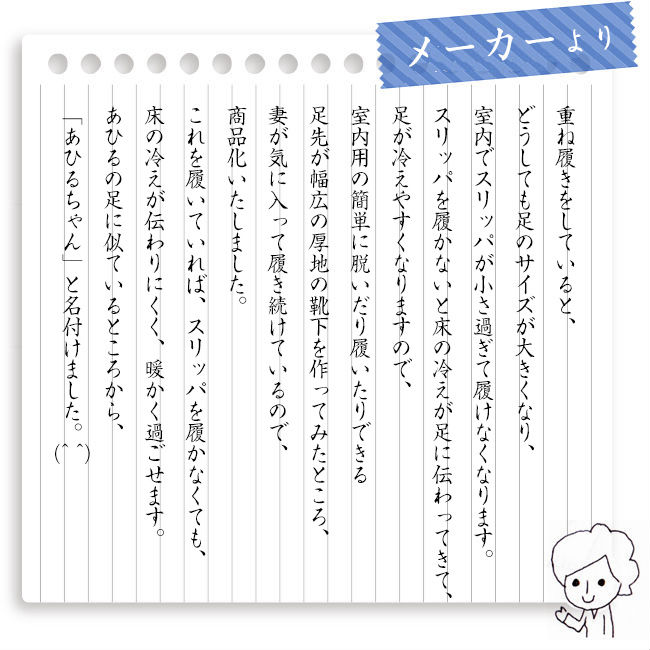 メーカーより
重ね履きをしていると、
どうしても足のサイズが大きくなり、
室内でスリッパが小さ過ぎて履けなくなります。
スリッパを履かないと床の冷えが足に伝わってきて、
足が冷えやすくなりますので、
室内用の簡単に脱いだり履いたりできる
足先が幅広の厚地の靴下を作ってみたところ、
妻が気に入って履き続けているので、
商品化いたしました。
これを履いていれば、スリッパを履かなくても、
床の冷えが伝わりにくく、暖かく過ごせます。
あひるの足に似ているところから、
「あひるちゃん」と名付けました。(^ ^)